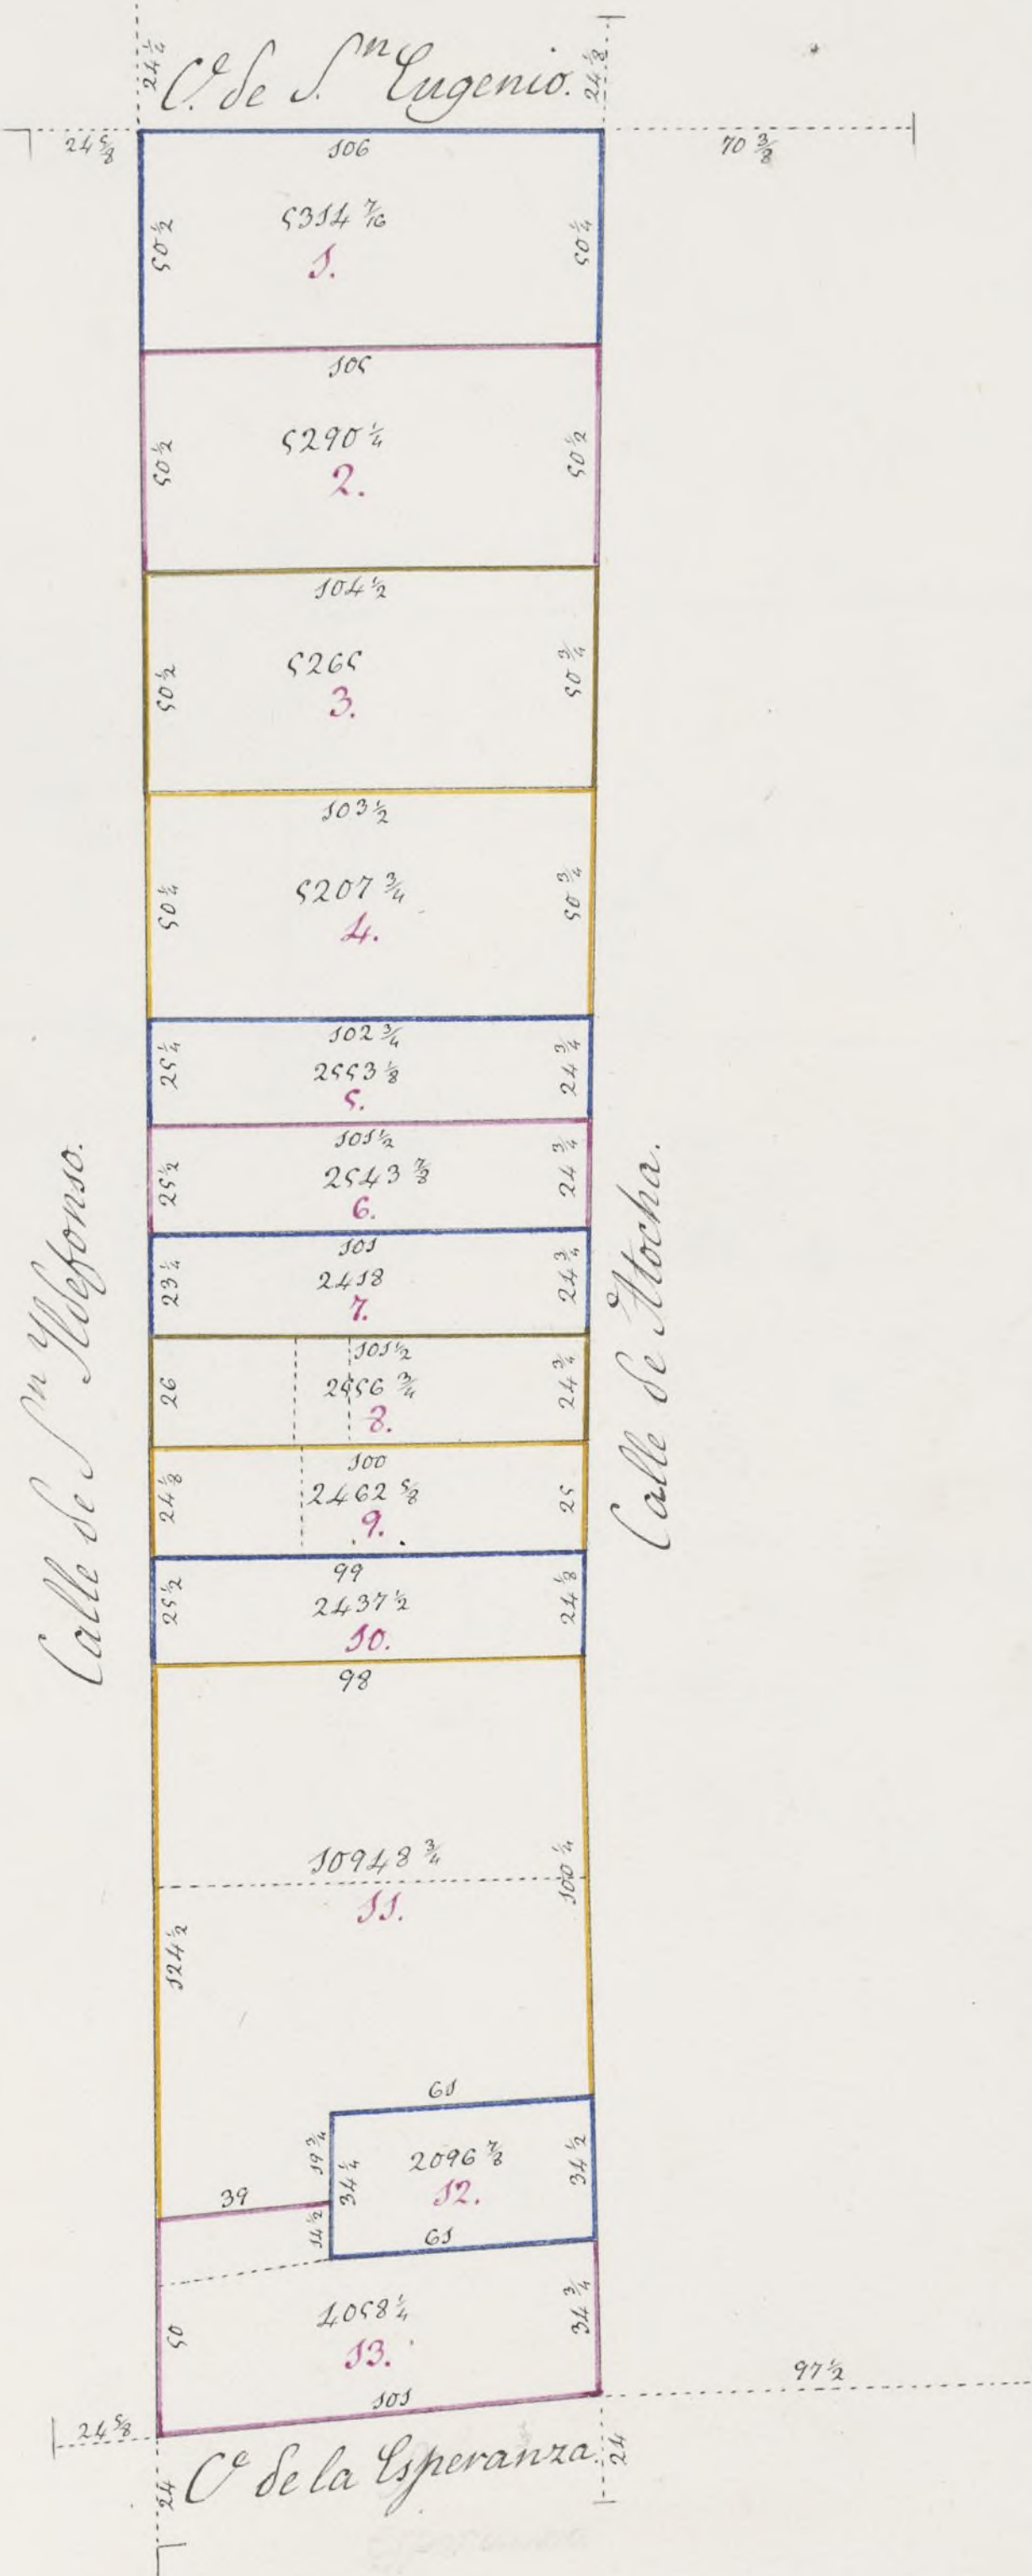 24 1/4
C.e de S.n Eugenio.
24 1/8
24 5/8
106
70 3/8
50 1/2
5314 7/16
50 1/4
1.
105
50 1/2
5290 1/4
50 1/2
2.
104 1/2
50 1/2
5265
50 3/4
3.
103 1/2
50 1/4
5207 3/4
50 3/4
4.
102 3/4
25 1/4
2553 1/8
24 3/4
5.
101 1/2
25 1/2
2543 7/8
24 3/4
6.
101
23 1/4
2418
24 3/4
7.
101 1/2
26
2556 3/4
24 3/4
8.
100
24 1/8
2462 5/8
25
9.
99
25 1/2
2437 1/2
24 1/8
10.
98
10948 3/4
100 1/4
11.
124 1/2
61
19 3/4
34 1/4
2096 7/8
34 1/2
12.
39
14 1/2
61
50
4058 1/4
34 3/4
13.
101
97 1/2
24 5/8
24
C.e de la Esperanza.
24
Calle de S.n Yldefonso.
Calle de Atocha.